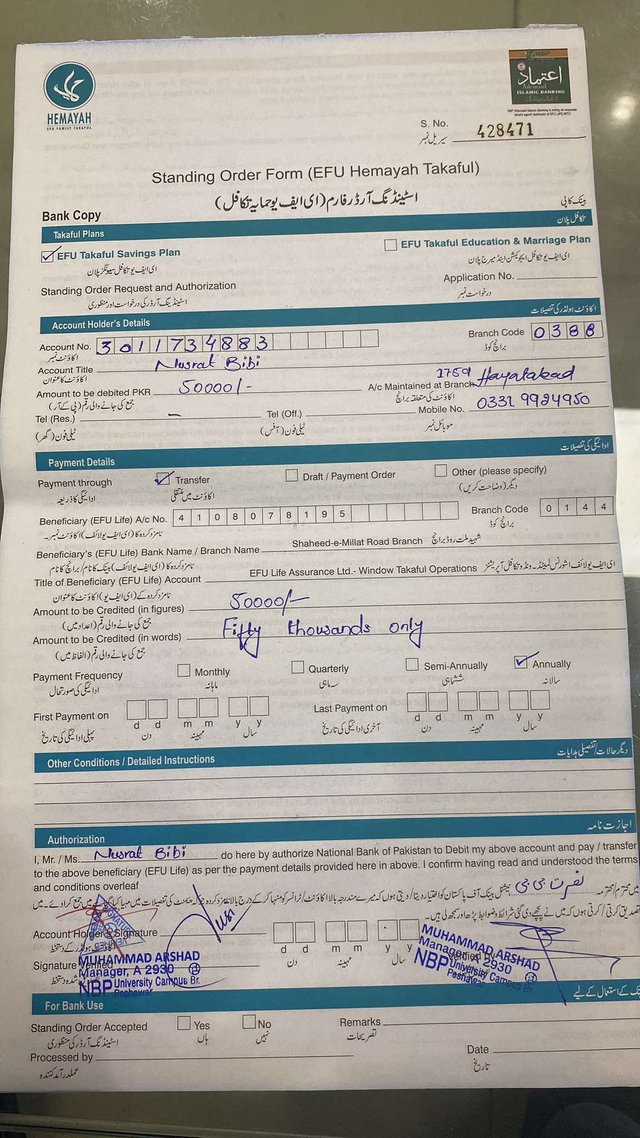 HEMAYAH
EFU FAMILY TAKAFUL
اعتماد
ISLAMIC BANKING
S. No. 428471
سیریل نمبر
Standing Order Form (EFU Hemayah Takaful)
اسٹینڈنگ آرڈر فارم (ای ایف یو حمایہ تکافل)
Bank Copy بینک کاپی
Takaful Plans تکافل پلان
EFU Takaful Savings Plan EFU Takaful Education & Marriage Plan
ای ایف یو تکافل سیونگز پلان ای ایف یو تکافل ایجوکیشن اینڈ میرج پلان
Standing Order Request and Authorization Application No.
اسٹینڈنگ آرڈر کی درخواست اور منظوری درخواست نمبر
Account Holder's Details اکاؤنٹ ہولڈر کی تفصیلات
Account No. 3011734883 Branch Code 0388
اکاؤنٹ نمبر برانچ کوڈ
Account Title Nusrat Bibi
اکاؤنٹ کا عنوان
Amount to be debited PKR 50000/- A/c Maintained at Branch 1759 Hayatabad
جمع کی جانے والی رقم (پی کے آر) اکاؤنٹ کی متعلقہ برانچ
Tel (Res.) – Tel (Off.) Mobile No. 0331 9924950
ٹیلی فون (گھر) ٹیلی فون (آفس) موبائل نمبر
Payment Details ادائیگی کی تفصیلات
Payment through Transfer Draft / Payment Order Other (please specify)
ادائیگی کا ذریعہ اکاؤنٹ میں منتقلی دیگر (وضاحت کریں)
Beneficiary (EFU Life) A/c No. 4108078195 Branch Code 0144
نامزد کردہ کا (ای ایف یو لائف) اکاؤنٹ نمبر۔ برانچ کوڈ
Beneficiary's (EFU Life) Bank Name / Branch Name Shaheed-e-Millat Road Branch شہید ملت روڈ برانچ
نامزد کردہ کا (ای ایف یو لائف) بینک کا نام / برانچ کا نام
Title of Beneficiary (EFU Life) Account EFU Life Assurance Ltd.- Window Takaful Operations ای ایف یو لائف انشورنس لمیٹڈ۔ ونڈو تکافل آپریشنز
نامزد کردہ کے (ای ایف یو) اکاؤنٹ کا عنوان
Amount to be Credited (in figures) 50000/-
جمع کی جانے والی رقم (اعداد میں)
Amount to be Credited (in words) Fifty thousands only
جمع کی جانے والی رقم (الفاظ میں)
Payment Frequency Monthly Quarterly Semi-Annually Annually
ادائیگی کی صورتحال ماہانہ سہ ماہی ششماہی سالانہ
First Payment on d d m m y y Last Payment on d d m m y y
پہلی ادائیگی کی تاریخ دن مہینہ سال آخری ادائیگی کی تاریخ دن مہینہ سال
Other Conditions / Detailed Instructions دیگر حالات / تفصیلی ہدایات
Authorization اجازت نامہ
I, Mr. / Ms. Nusrat Bibi do here by authorize National Bank of Pakistan to Debit my above account and pay / transfer
to the above beneficiary (EFU Life) as per the payment details provided here in above. I confirm having read and understood the terms
and conditions overleaf
نصرت بی بی
Account Holder's Signature
d d m m y y
دن مہینہ سال
Signature Verified
SIGNATURE VERIFIED
MUHAMMAD ARSHAD
Manager, A 2930
NBP University Campus Br.
Peshawar
MUHAMMAD ARSHAD
Manager, A 2930
NBP University Campus Br.
Peshawar
For Bank Use بینک کے استعمال کے لیے
Standing Order Accepted Yes No Remarks
اسٹینڈنگ آرڈر کی منظوری ہاں نہیں تصریحات
Processed by Date
عملدرآمد کنندہ تاریخ